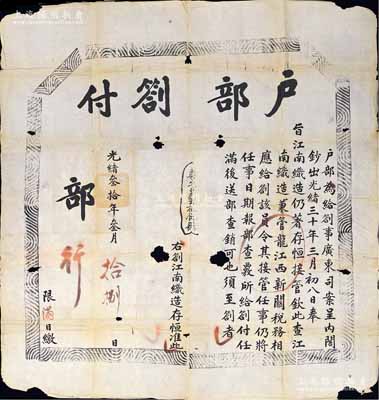 戶部劄付
戶部為給劄事廣東司案呈內閣
鈔出光緒三十年三月初八日奉
旨江南織造仍著存恆接管欽此查江
南織造兼管龍江西新關稅務相
應給劄該員令其接管任事仍將
任事日期報部查覈所給劄付任
滿後送部查銷可也須至劄者
右劄江南織造存恆准此
光緒叁拾年叁月拾捌日
部行
限滿日繳